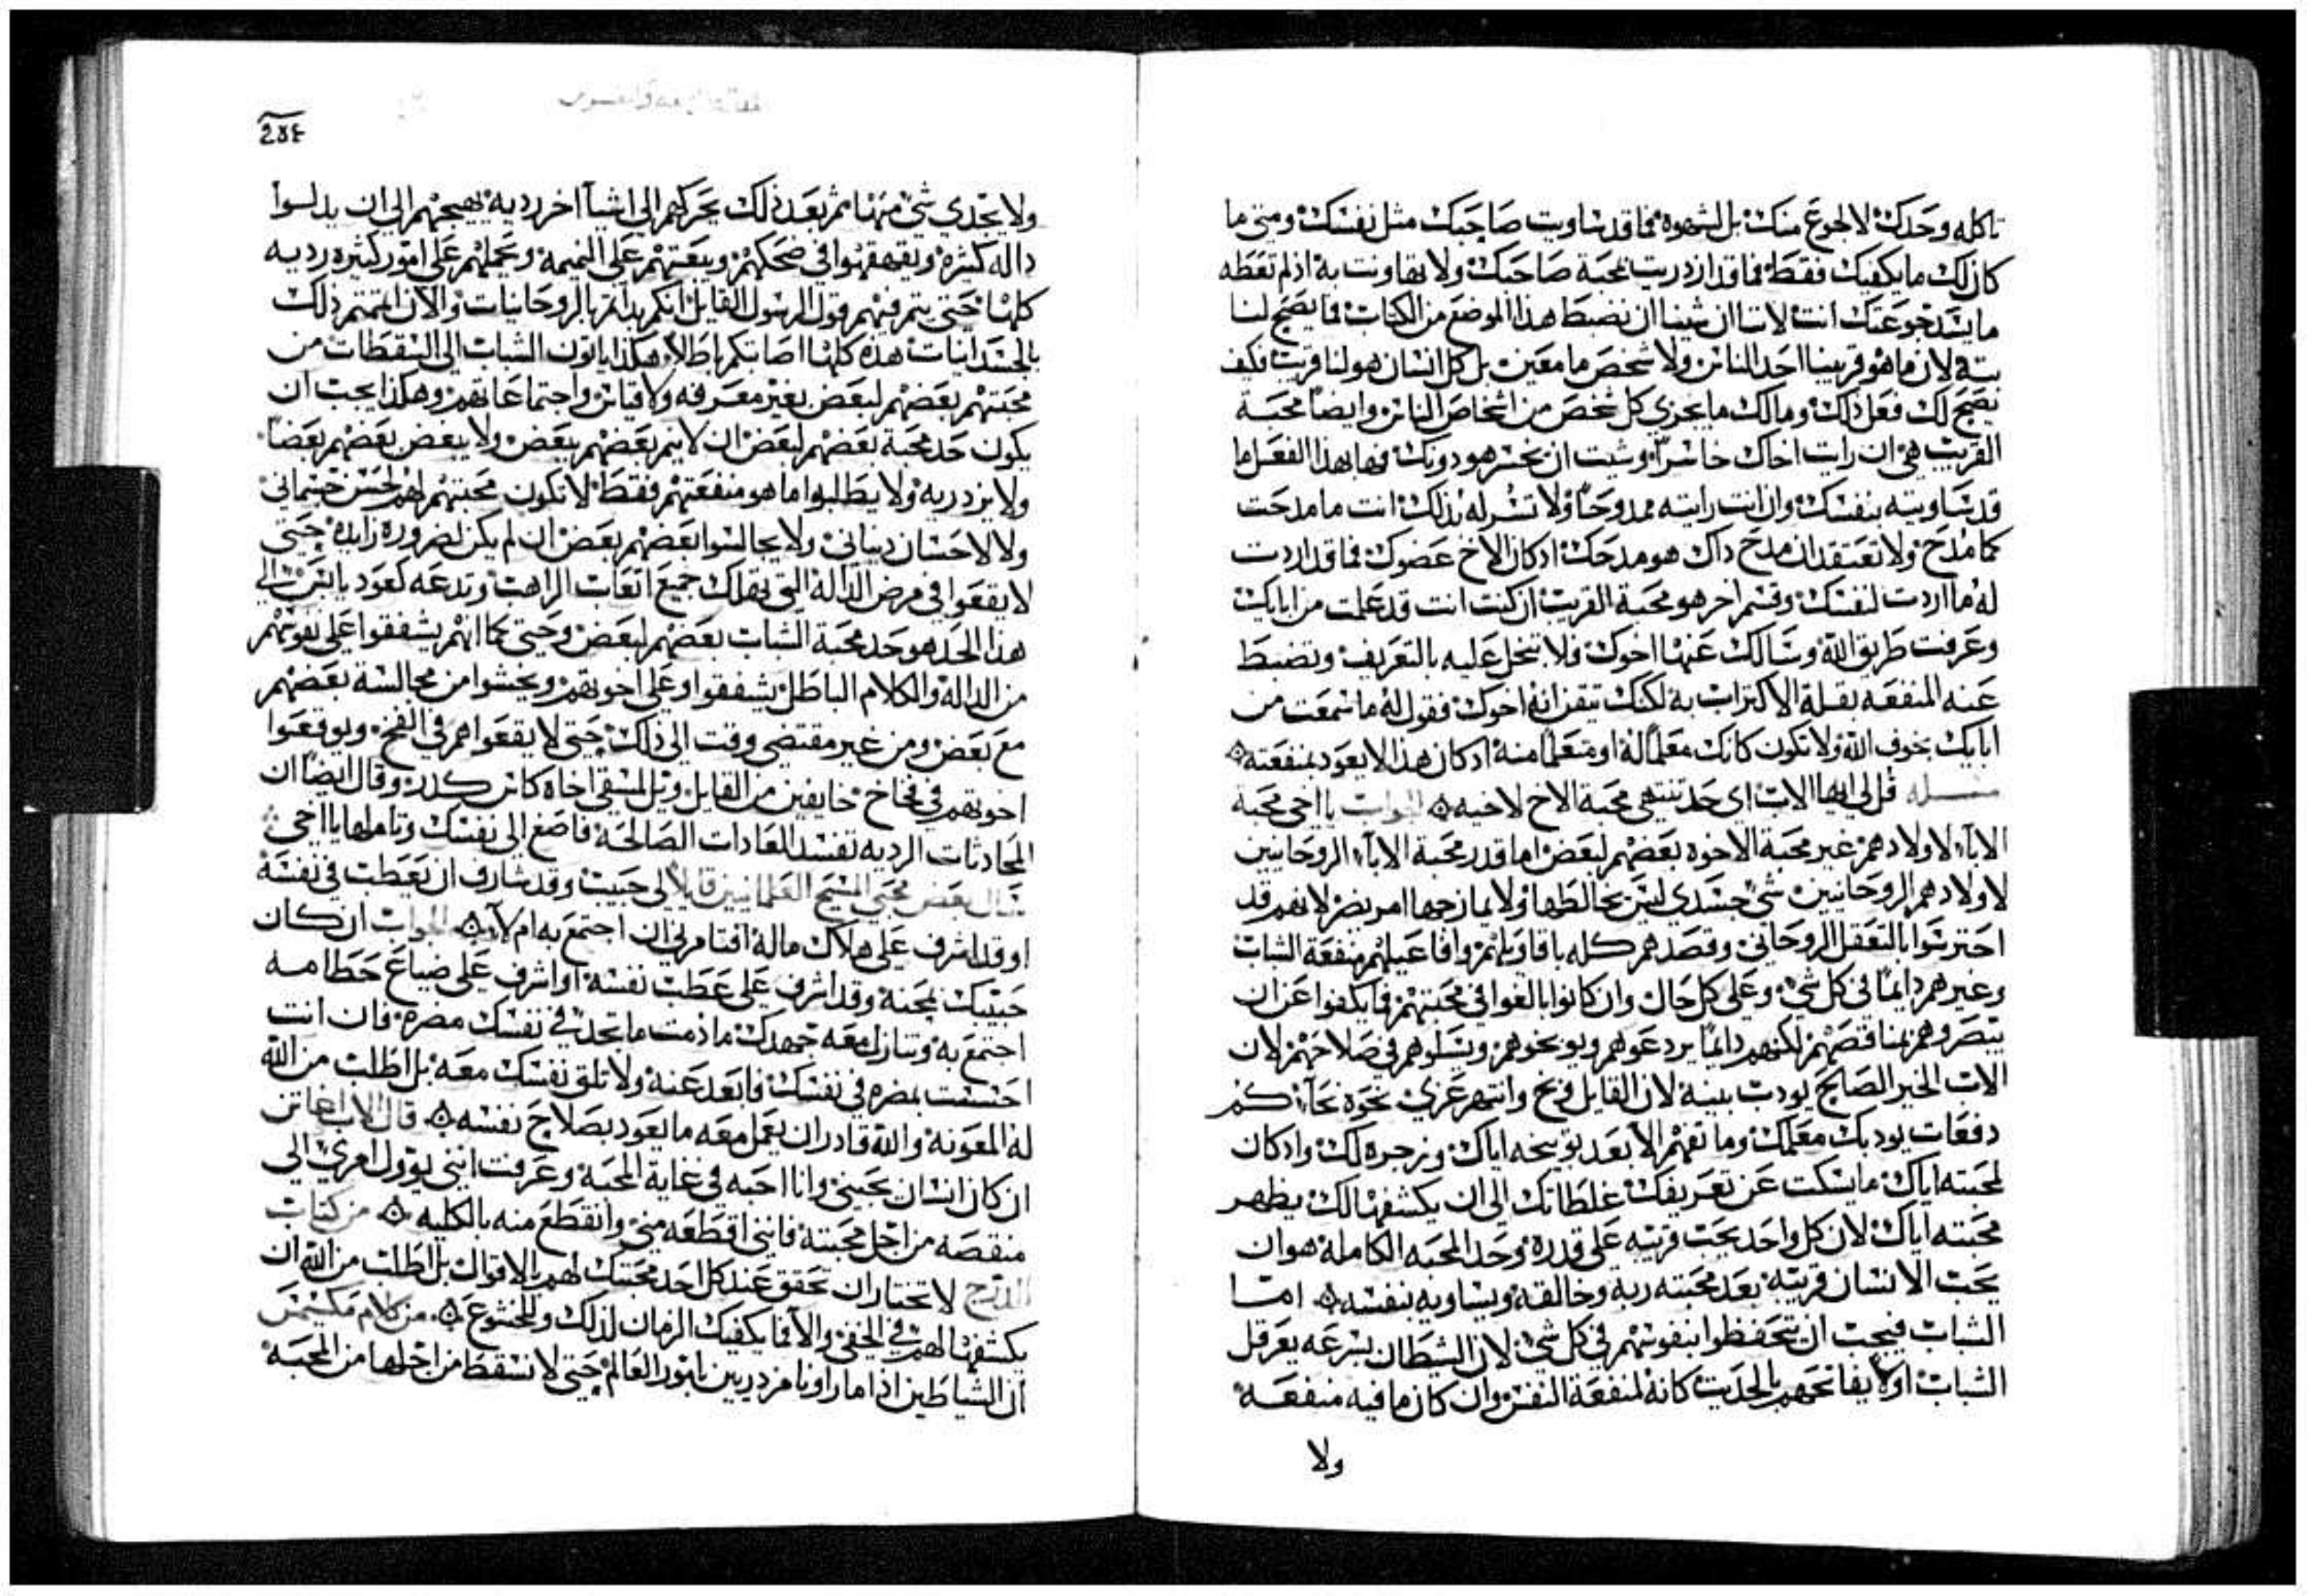 تاكله وحدك لا لجوع منك بل لشهوه فما قد ساويت صاحبك مثل نفسك ومتى ما
كان لك ما يكفيك فقط فما قد ازدريت بمحبة صاحبك ولا تهاونت به اذ لم تعطه
ما يسد جوعتك انت لاننا ان شينا ان نضبط هذا الموضع من الكتاب فما يصح لنا
بتة لان ما هو قريبنا احد الناس ولا شخص ما معين بل كل انسان هو لنا قريب فكيف
يصح لك فعل ذلك وما لك ما يجزي كل شخص من اشخاص الناس وايضا محبة
القريب هي ان رايت اخاك خاسرا وشيت ان يخسر هو دونك فبهذا الفعل ما
قد ساويته بنفسك وان انت رايته ممدوحا ولا تسر له بذلك انت ما مدحت
كما مدح ولا تعتقد ان مدح داك هو مدحك ادكان الاخ عضوك فما قد اردت
له ما اردت لنفسك وقسم اخر هو محبة القريب ان كنت انت قد علمت من ابايك
وعرفت طريق الله وسالك عنها اخوك فلا تبخل عليه بالتعريف وتضبط
عنه المنفعه بقلة الاكتراث به لكنك تيقن انه اخوك فقول له ما سمعت من
ابايك بخوف الله ولا تكون كانك معلما له او متعلما منه ادكان هذا لا يعود بمنفعته
مسله قل لي ايها الاب اي حد تنتهي محبة الاخ لاخيه الجواب يا اخي محبة
الاباء لاولادهم غير محبة الاخوه بعضهم لبعض اما قدر محبة الاباء الروحانيين
لاولادهم الروحانيين شي جسدي ليس يخالطها ولا يمازجها امر يضر لانهم قد
احترسوا بالتعقل الروحاني وقصدهم كله باقاويلهم وافاعيلهم منفعة الشباب
وغيرهم دايما في كل شي وعلى كل حال وان كانوا بالغوا في محبتهم فما يكفوا عن ان
يبصروهم بمناقصهم لكنهم دايما يردعوهم ويوبخوهم ويسلوهم في صلاحهم لان
الاب الخير الصالح يودب بنيه لان القايل فبخ وانتهر عزي نحوه نجاه كم
دفعات يودبك معلمك وما تفهم الا بعد توبيخه اياك وزجره لك وادكان
لمحبته اياك ما يسكت عن تعريفك غلطاتك الى ان يكشفها لك يظهر
محبته اياك لان كل واحد يحب قريبه على قدره وحد المحبه الكاملة هو ان
يحب الانسان قريبه بعد محبته ربه وخالقه ويساويه بنفسه اما
الشباب فيجب ان يتحفظوا بنفوسهم في كل شي لان الشطان بسرعه يعرقل
الشباب اولا يفاتحهم بالحديث كانه لمنفعة النفس وان كان ما فيه منفعه
ولا
2٥٤
ولا يجدي شي منها ثم بعد ذلك يحركهم الى اشيا اخر رديه يهيجهم الى ان يدلسوا
داله كثره وتقهقهوا في ضحكهم ويبعتهم على النميمة ويحملهم على امور كثيره رديه
كلها حتى يتم فيهم قول الرسول القايل انكم بداتم بالروحانيات والان اتممتم ذلك
بالجسدانيات هذه كلها اصابتكم باطلا هكذا ياتون الشباب الى السقطات من
محبتهم بعضهم لبعض بغير معرفه ولا قياس واجتماعاتهم وهكذا يجب ان
يكون حد محبة بعضهم لبعض ان لا ينم بعضهم ببعض ولا يبغض بعضهم بعضا
ولا يزدريه ولا يطلبوا ما هو منفعتهم فقط لا تكون محبتهم لهم لحسن جسماني
ولا لاحسان دنياني ولا يجالسوا بعضهم بعض ان لم يكن لضرورة زايده حتى
لا يقعوا في مرض الدالة التي تهلك جميع اتعاب الراهب وتدعه كعود يابس الى
هذا الحد هو حد محبة الشباب بعضهم لبعض وحتى كما انهم يشفقوا على نفوسهم
من الدالة والكلام الباطل يشفقوا على اخوتهم ويخشوا من مجالسة بعضهم
مع بعض ومن غير مقتضى وقت الى ذلك حتى لا يقعوا هم في الفخ ويوقعوا
اخوتهم في فخاخ خايفين من القايل ويل لمسقي اخاه كاس كدر وقال ايضا ان
المحادثات الرديه تفسد العادات الصالحة فاصغ الى نفسك وتاملها يا اخي
سال بعض محبي المسيح العلمانيين قايلا لي حبيب وقد شارف ان يعطب في نفسه
او قد اشرف على هلاك ماله افتامرني ان اجتمع به ام لا الجواب ان كان
حبيبك بمحنة وقد اشرف على عطب نفسه او اشرف على ضياع حطامه
اجتمع به وتنازل معه جهدك ما دمت ما تجد في نفسك مضره فان انت
احسست بمضره في نفسك فابعد عنه ولا تلق نفسك معه بل اطلب من الله
له المعونه والله قادر ان يعمل معه ما يعود بصلاح نفسه قال الاب اغاتن
ان كان انسان يحبني وانا احبه في غاية المحبة وعرفت انني يوول امري الى
منقصه من اجل محبته فانني اقطعه مني وانقطع منه بالكليه من كتاب
الدرج لا تختار ان تحقق عند كل احد محبتك لهم بالاقوال بل اطلب من الله ان
يكشفها لهم في الخفي والا فما يكفيك الزمان لذلك وللخشوع من كلام مكسيمس
ان الشياطين اذا ما راونا مزدريين بامور العالم حتى لا نسقط من اجلها من المحبة